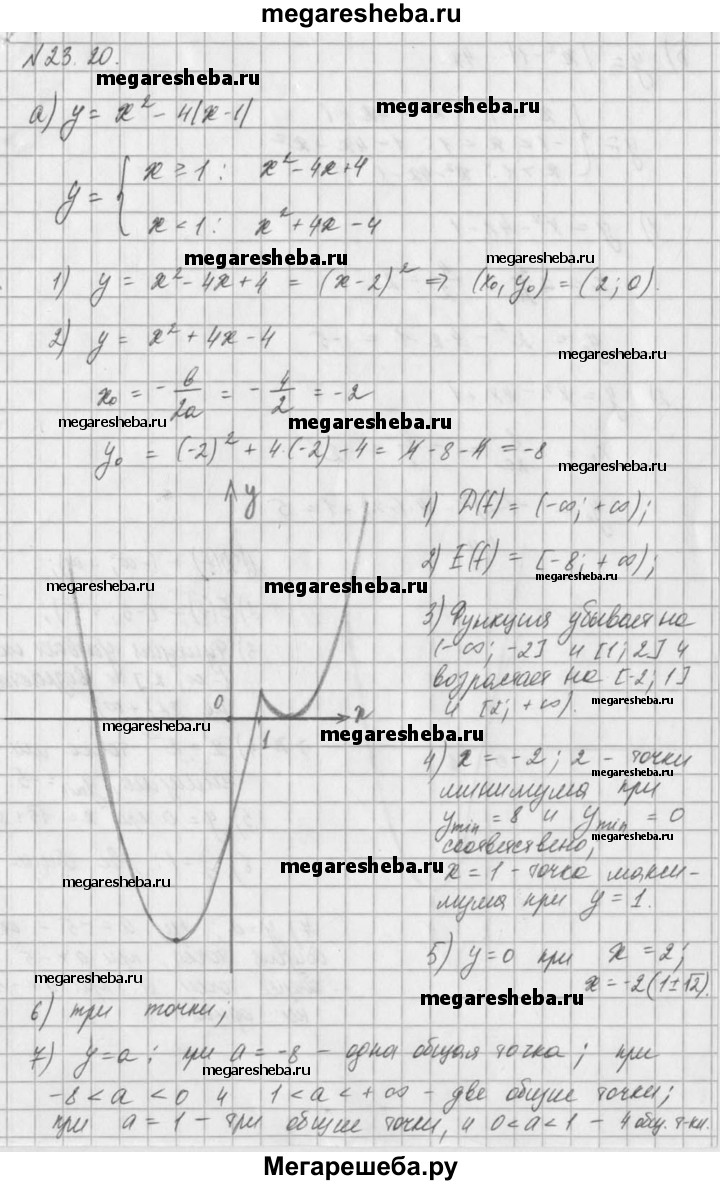 megaresheba.ru
№23.20.
megaresheba.ru
megaresheba.ru
а) y = x² - 4|x-1|
y = { x ≥ 1: x² - 4x + 4
x < 1: x² + 4x - 4
megaresheba.ru
megaresheba.ru
1) y = x² - 4x + 4 = (x-2)² ⇒ (x₀, y₀) = (2; 0).
2) y = x² + 4x - 4
megaresheba.ru
x₀ = - в/2a = - 4/2 = -2
megaresheba.ru
megaresheba.ru
y₀ = (-2)² + 4·(-2) - 4 = 4 - 8 - 4 = -8
megaresheba.ru
y
1) D(f) = (-∞; +∞);
2) E(f) = [-8; +∞);
megaresheba.ru
megaresheba.ru
megaresheba.ru
3) Функция убывает на
(-∞; -2] и [1; 2] и
возрастает на [-2; 1]
и [2; +∞).
megaresheba.ru
0
x
1
megaresheba.ru
megaresheba.ru
4) x = -2; 2 - точки
megaresheba.ru
минимума при
y min = 8 и y min = 0
соответствено,
megaresheba.ru
megaresheba.ru
x = 1 - точка макси-
megaresheba.ru
мума при y = 1.
5) y = 0 при x = 2;
x = -2(1±√2).
megaresheba.ru
megaresheba.ru
6) три точки;
7) y = a: при a = -8 - одна общая точка; при
megaresheba.ru
-8 < a < 0 и 1 < a < +∞ - две общие точки;
при a = 1 - три общие точки, и 0 < a < 1 - 4 общ. т-ки.
Мегарешеба.ру